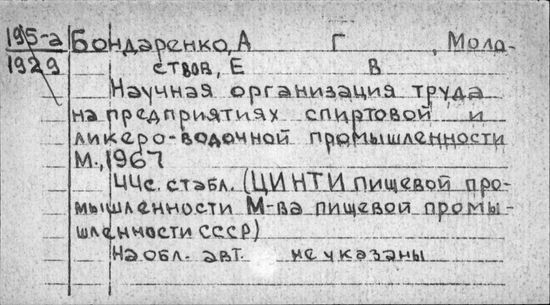 195-а Бондаренко, А Г , Мола-
1929 ствов, Е В
Научная организация труда
на предприятиях спиртовой и
ликеро-водочной промышленности
М., 1967
44с. стабл. (ЦИНТИ пищевой про-
мышленности М-ва пищевой промы-
шленности СССР)
На обл. авт. не указаны